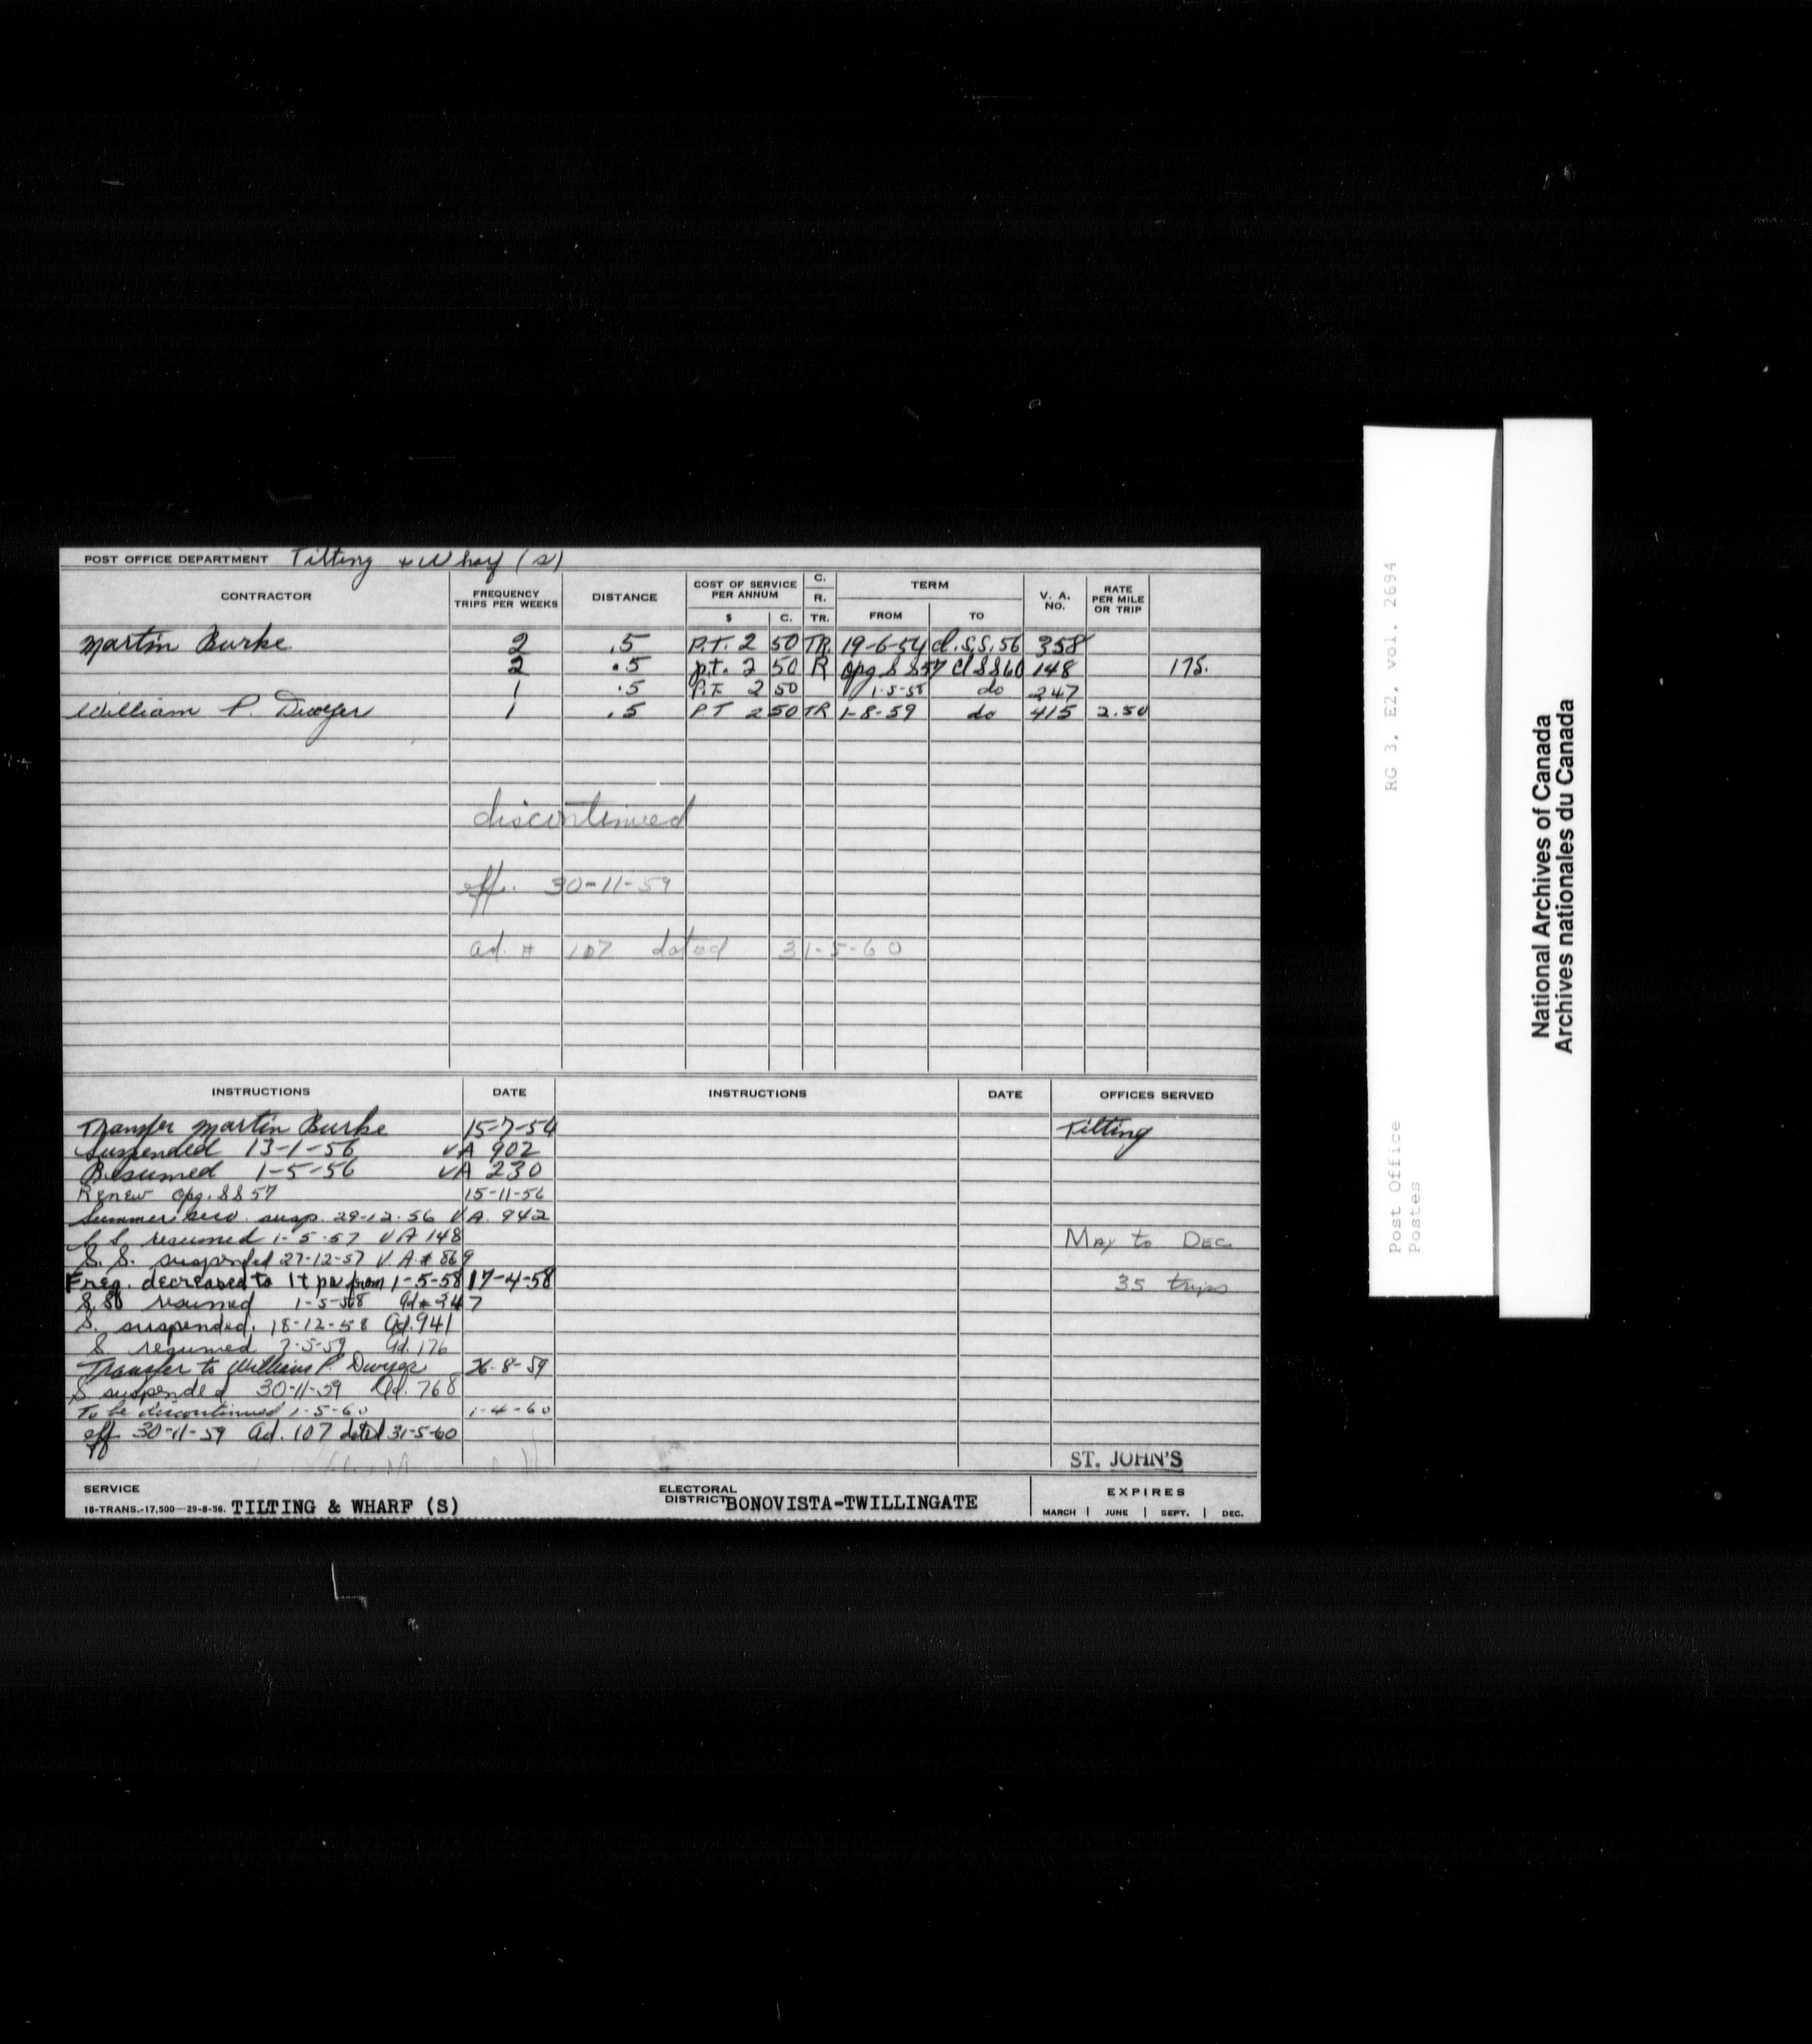 POST OFFICE DEPARTMENT Tilting & Wharf (S)
CONTRACTOR FREQUENCY TRIPS PER WEEKS DISTANCE COST OF SERVICE PER ANNUM $ C. C. R. TR. TERM FROM TO V. A. NO. RATE PER MILE OR TRIP
Martin Burke 2 .5 P.T. 2 50 TR. 19-6-54 cl.S.S.56 358
2 .5 p.t. 2 50 R opg S S57 cl S S60 148 175.
1 .5 P.T. 2 50 1-5-58 do 247
William P. Dwyer 1 .5 P.T 2 50 TR 1-8-59 do 415 2.50
discontinued
eff. 30-11-59
ad. # 107 dated 31-5-60
INSTRUCTIONS DATE INSTRUCTIONS DATE OFFICES SERVED
Transfer Martin Burke 15-7-54 Tilting
Suspended 13-1-56 VA 902
Resumed 1-5-56 VA 230
Renew opg. S S 57 15-11-56
Summer serv. susp. 29-12-56 V.A. 942
S. S. resumed 1-5-57 V A 148 May to Dec.
S. S. suspended 27-12-57 V. A. # 869
Freq. decreased to 1t pw from 1-5-58 17-4-58 35 trips
S.S. resumed 1-5-58 Ad # 247
S. suspended. 18-12-58 Ad. 941
S. resumed 7-5-59 Ad. 176
Transfer to William P. Dwyer 26-8-59
S suspended 30-11-59 Ad. 768
To be discontinued 1-5-60 1-4-60
eff 30-11-59 Ad. 107 dated 31-5-60
ST. JOHN'S
SERVICE
18-TRANS.-17,500—29-8-56. TILTING & WHARF (S)
ELECTORAL DISTRICT BONOVISTA-TWILLINGATE
EXPIRES
MARCH | JUNE | SEPT. | DEC.
RG 3, E2, vol. 2694
Post Office
Postes
National Archives of Canada
Archives nationales du Canada